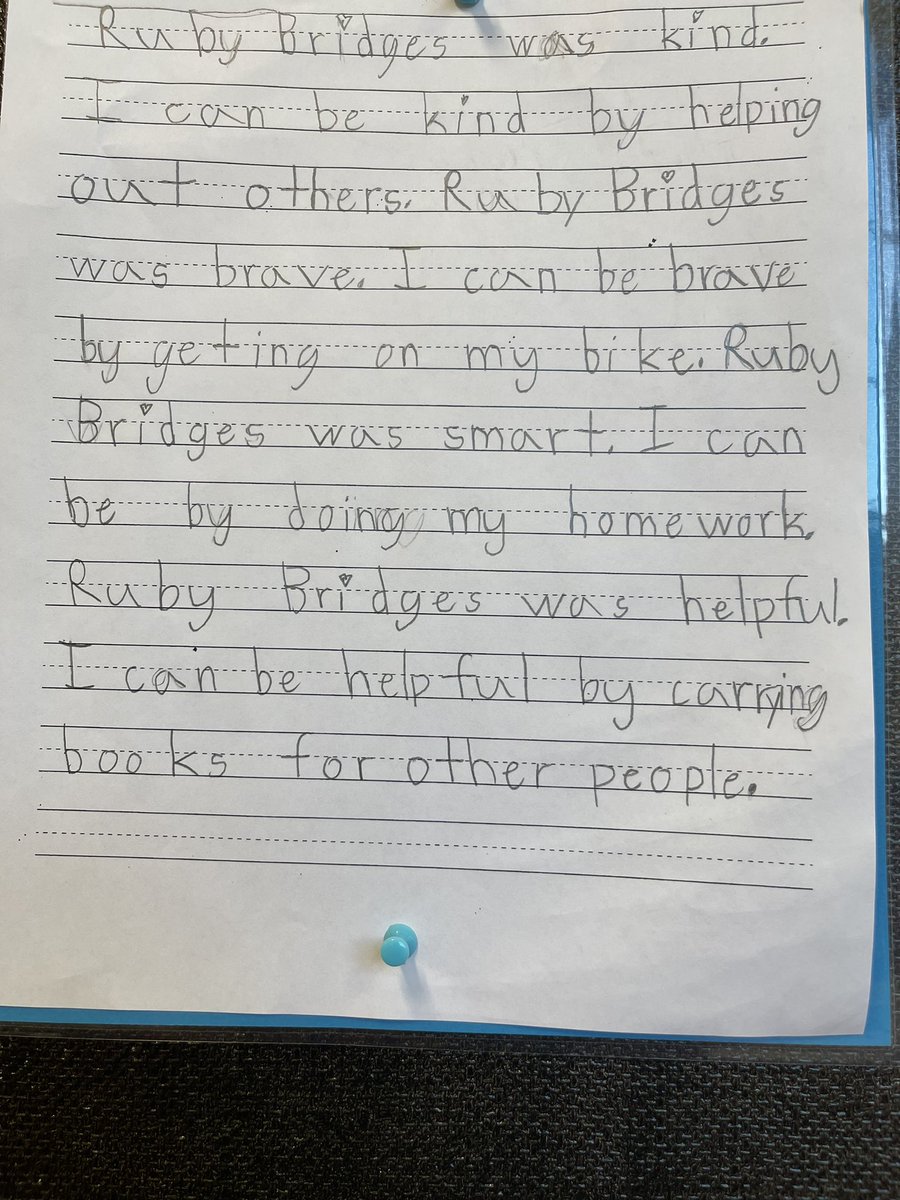 Ruby Bridges was kind.
I can be kind by helping
out others. Ruby Bridges
was brave. I can be brave
by geting on my bike. Ruby
Bridges was smart. I can
be by doing my homework.
Ruby Bridges was helpful.
I can be helpful by carrying
books for other people.